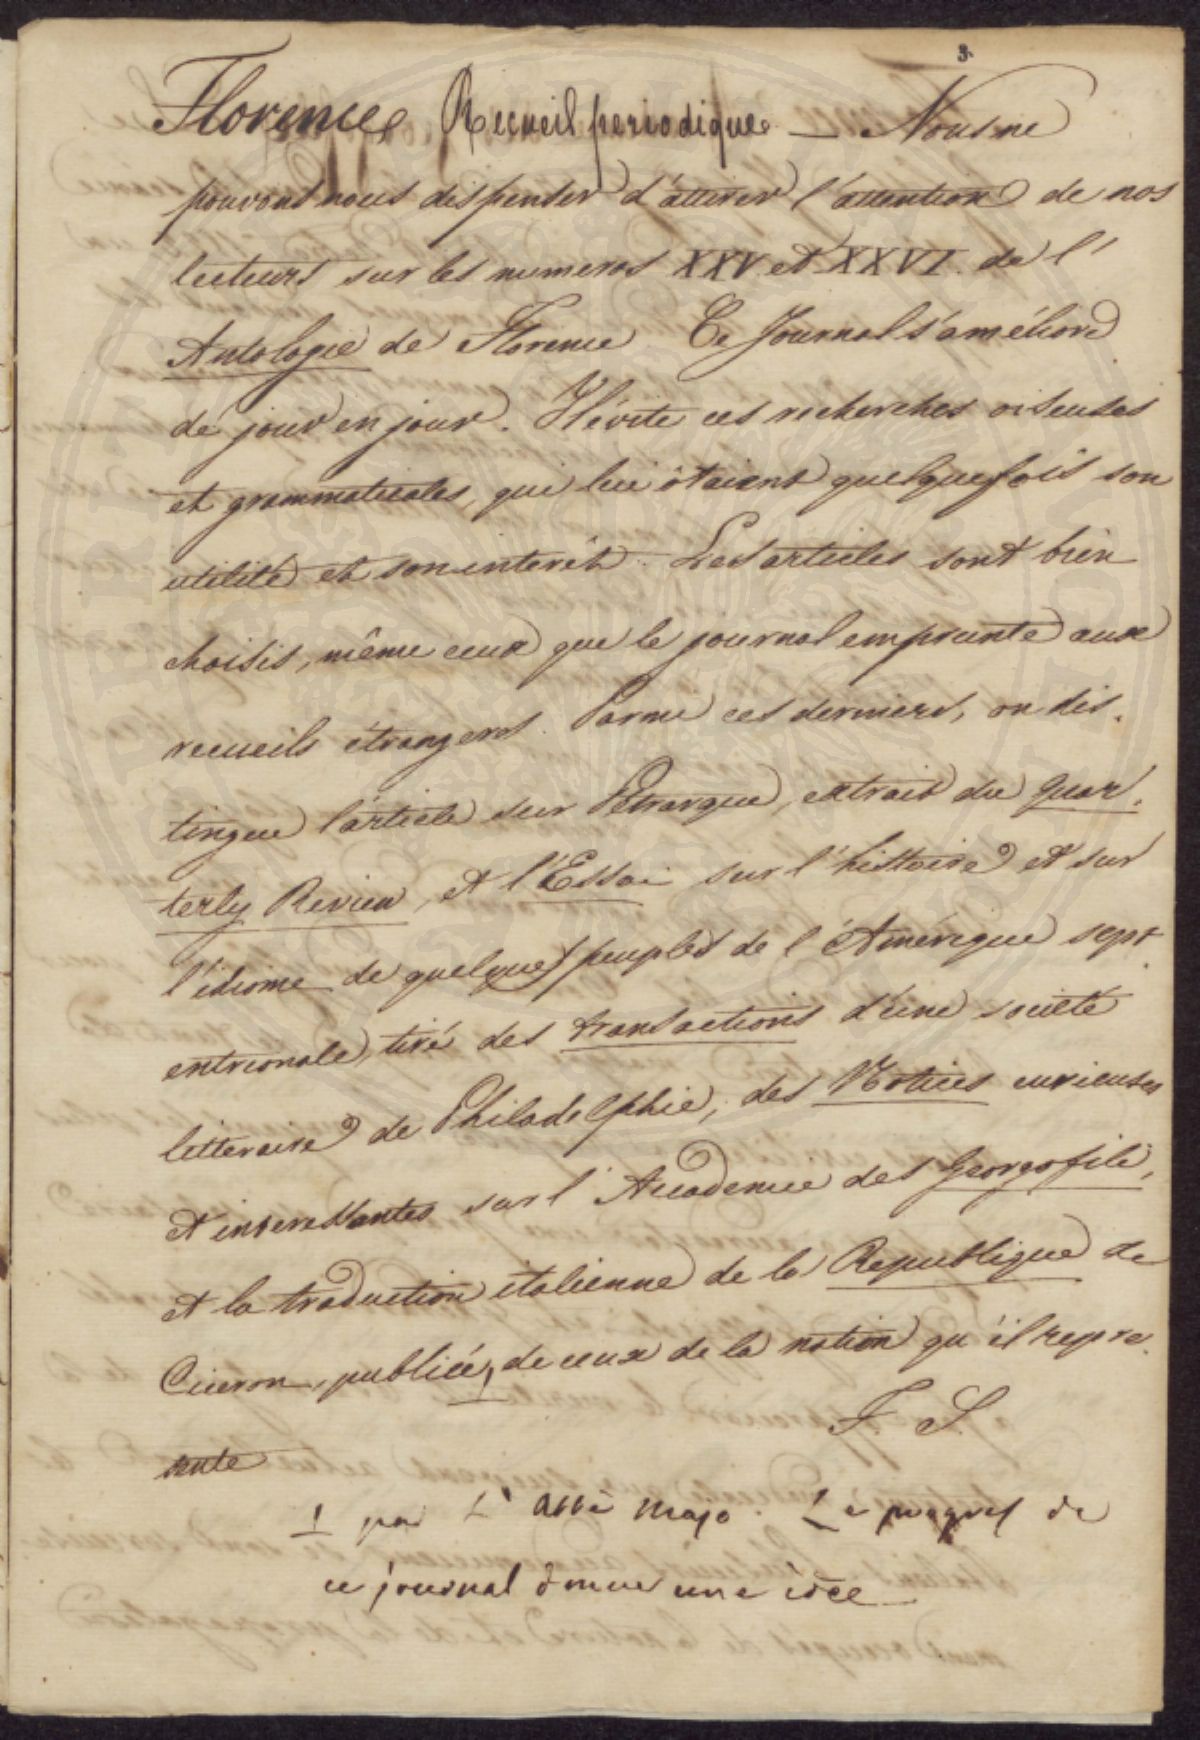 3.
Florence Recueil periodique — Nous ne
pouvons nous dispenser d'attirer l'attention de nos
lecteurs sur les numeros XXV. et XXVI. de l'
Antologie de Florence. Ce Journal s'améliore
de jour en jour. Il évite ces recherches oiseuses
et grammaticales, qui lui ôtaient quelquefois son
utilité et son interêt. Les articles sont bien
choisis, même ceux que le journal emprunte aux
recueils étrangers. Parmi ces derniers, on dis-
tingue l'article sur Petrarque, extrait du Quar-
terly Review, et l'Essai sur l'histoire et sur
l'idiome de quelques peuples de l'Amérique sept
entrionale, tiré des transactions d'une société
litteraire de Philadelphie, des Notices curieuses
et interessantes sur l'Academie des Georgofili,
et la traduction italienne de la Republique de
Ciceron, publiée, de ceux de la nation qu'il repre-
sente
F. S.
1 par L'abbé Majo. Le progres de
ce journal donne une idée